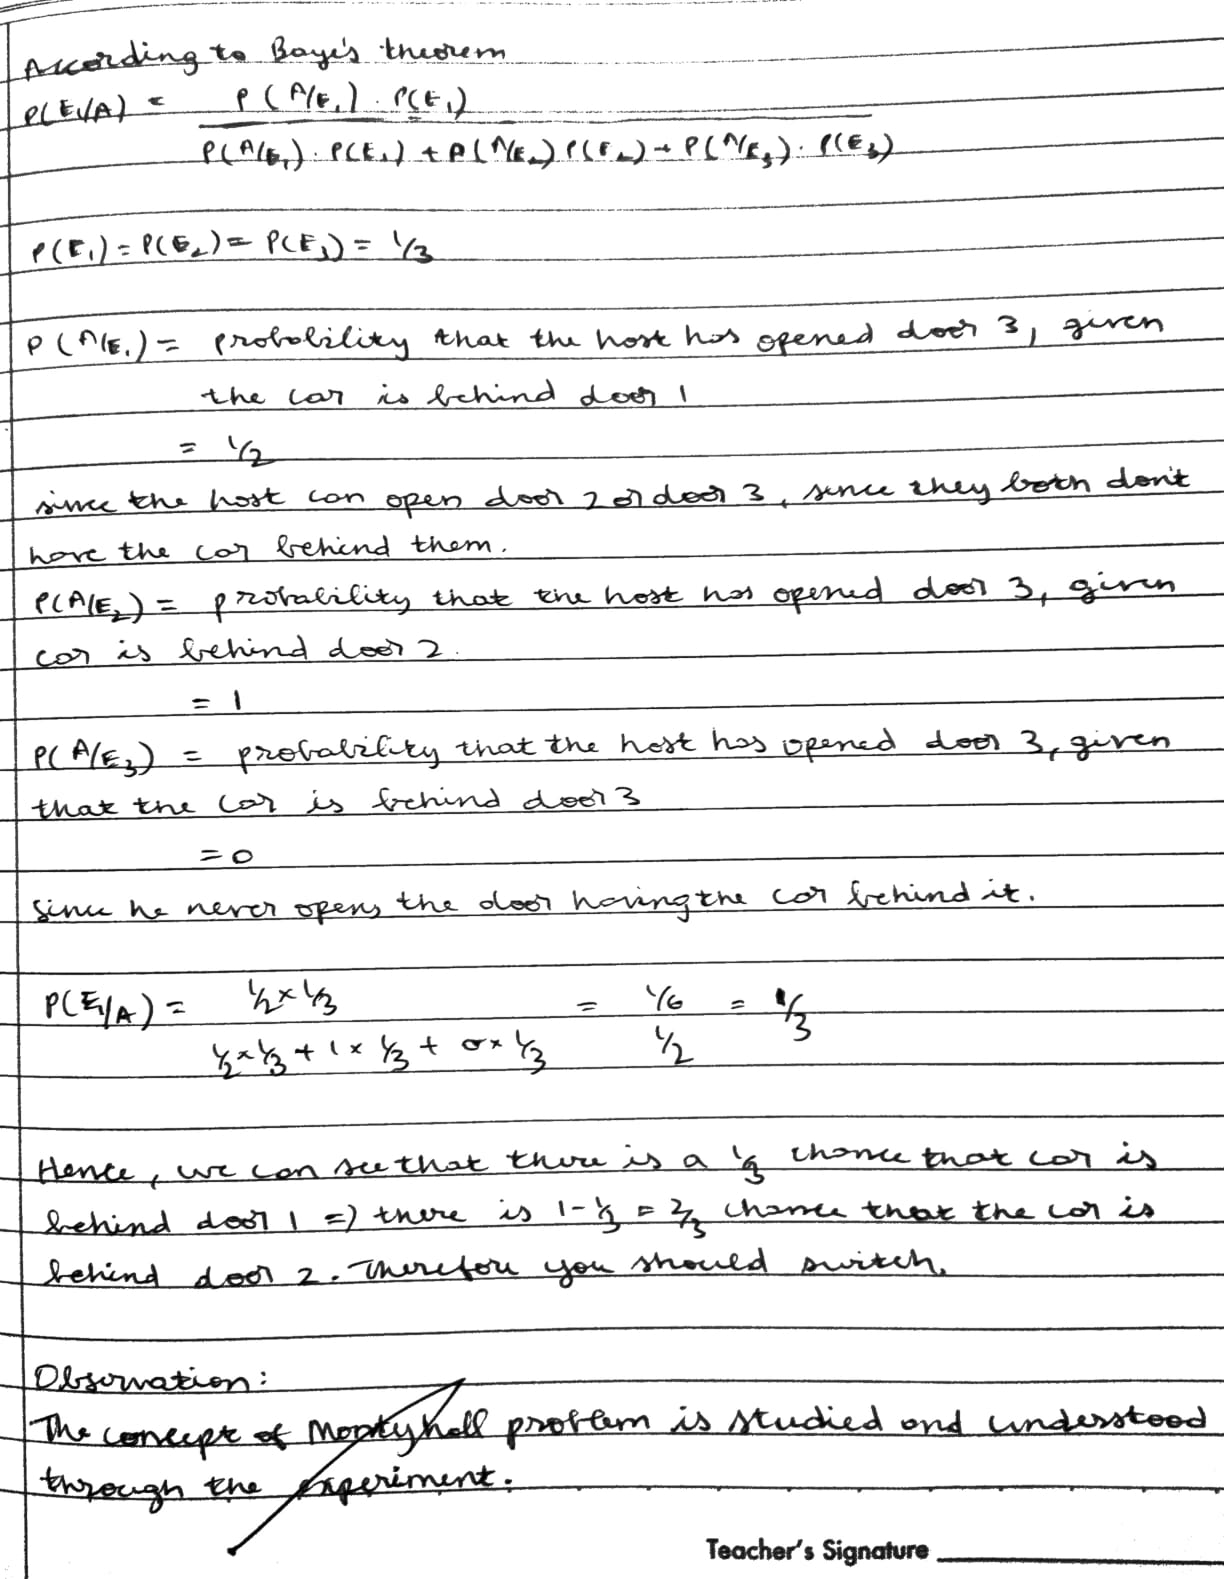 According to Baye's theorem
P(E₁/A) = P(A/E₁) . P(E₁)
P(A/E₁) . P(E₁) + P(A/E₂) P(E₂) + P(A/E₃) . P(E₃)
P(E₁) = P(E₂) = P(E₃) = 1/3
P(A/E₁) = probability that the host has opened door 3, given
the car is behind door 1
= 1/2
since the host can open door 2 or door 3, since they both don't
have the car behind them.
P(A/E₂) = probability that the host has opened door 3, given
car is behind door 2.
= 1
P(A/E₃) = probability that the host has opened door 3, given
that the car is behind door 3
= 0
Since he never opens the door having the car behind it.
P(E₁/A) = 1/2 x 1/3 = 1/6 = 1/3
1/2 x 1/3 + 1 x 1/3 + 0 x 1/3 1/2
Hence, we can see that there is a 1/3 chance that car is
behind door 1 => there is 1-1/3 = 2/3 chance that the car is
behind door 2. Therefore you should switch.
Observation:
The concept of Montyhall problem is studied and understood
through the experiment.
Teacher's Signature